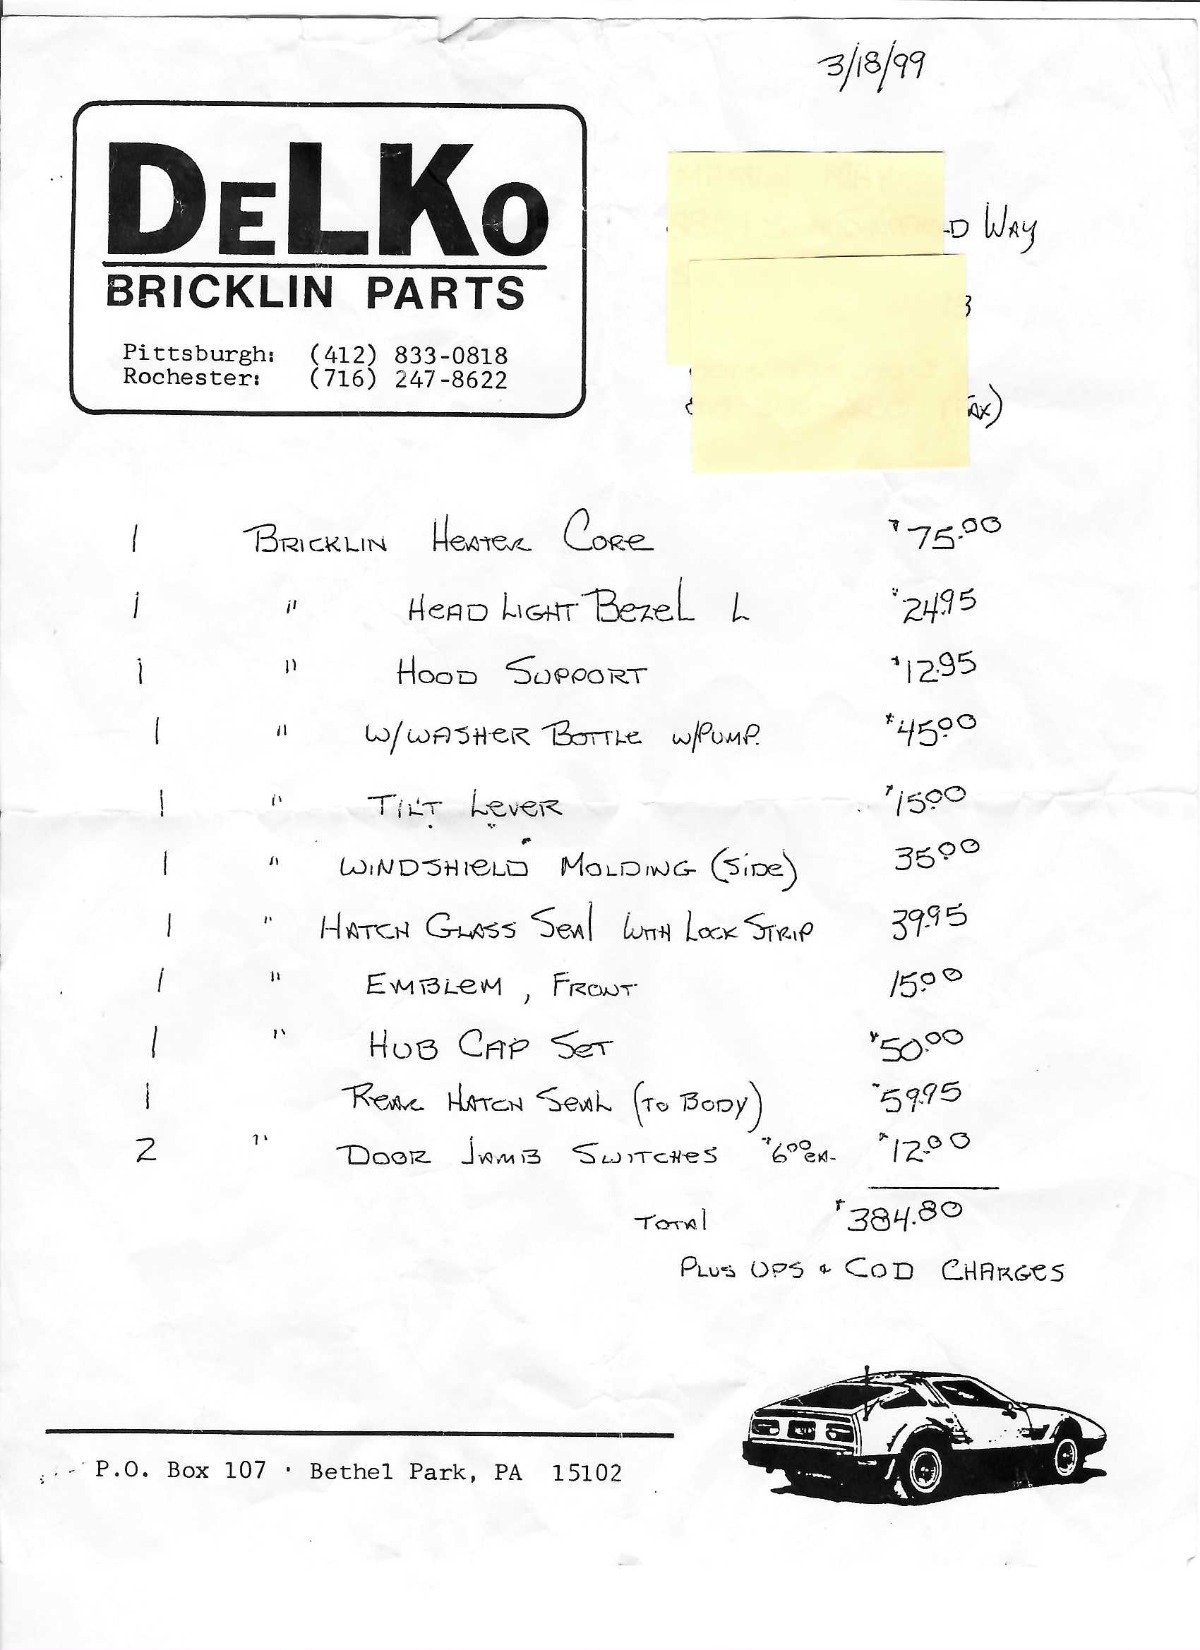 3/18/99
DELKO
BRICKLIN PARTS
Pittsburgh: (412) 833-0818
Rochester: (716) 247-8622
D WAY
1 BRICKLIN HEATER CORE $75.00
1 " HEAD LIGHT BEZEL L $24.95
1 " HOOD SUPPORT $12.95
1 " W/WASHER BOTTLE W/PUMP. $45.00
1 " TILT LEVER $15.00
1 " WINDSHIELD MOLDING (SIDE) 35.00
1 " HATCH GLASS SEAL WITH LOCK STRIP 39.95
1 " EMBLEM, FRONT 15.00
1 " HUB CAP SET $50.00
1 REAR HATCH SEAL (TO BODY) $59.95
2 " DOOR JAMB SWITCHES $6.00 EA. $12.00
TOTAL $384.80
PLUS UPS & COD CHARGES
P.O. Box 107 · Bethel Park, PA 15102